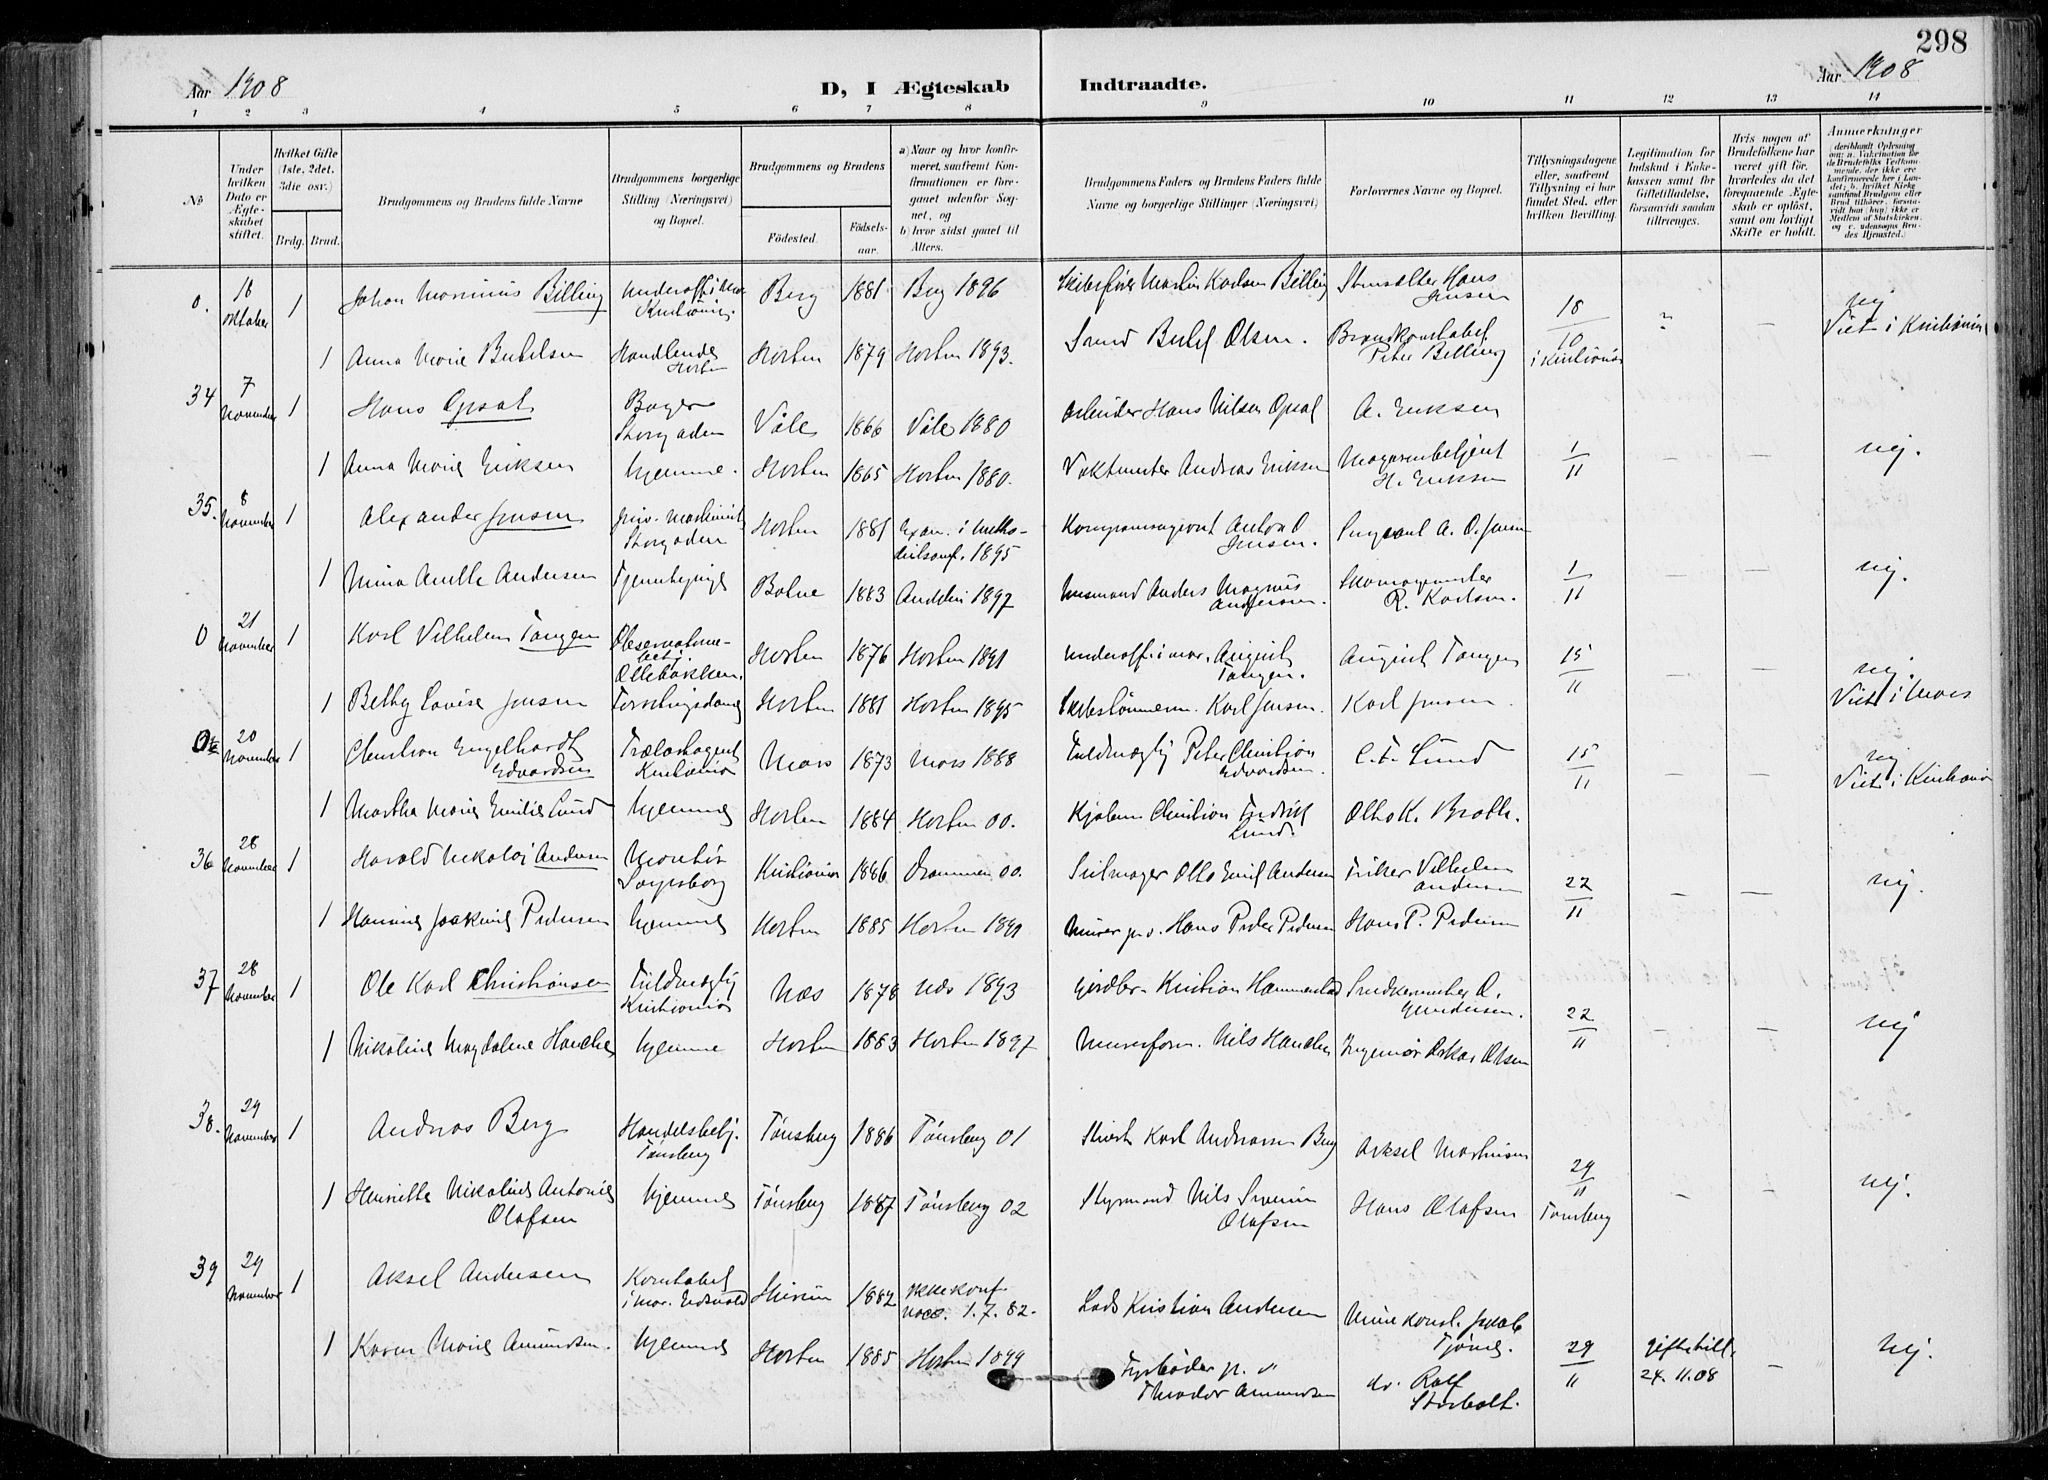 298
Aar 1908
D, I Ægteskab Indtraadte.
Aar 1908
1 2 3 4 5 6 7 8 9 10 11 12 13 14
No
Under hvilken Dato er Ægteskabet stiftet.
Hvilket Gifte (1ste, 2det, 3die osv.)
Brdg. Brud.
Brudgommens og Brudens fulde Navne
Brudgommens borgerlige Stilling (Næringsvei) og Bopæl.
Brudgommens og Brudens
Fødested. Fødselsaar.
a) Naar og hvor konfirmeret, saafremt Konfirmationen er foregaaet udenfor Sognet, og
b) hvor sidst gaaet til Alters.
Brudgommens Faders og Brudens Faders fulde Navne og borgerlige Stillinger (Næringsvei)
Forlovernes Navne og Bopæl.
Tillysningsdagene eller, saafremt Tillysning ei har fundet Sted, efter hvilken Bevilling.
Legitimation for Indskud i Enkekassen samt for Giftetilladelse, forsaavidt saadan tiltrænges.
Hvis nogen af Brudefolkene har været gift før, hvorledes da det foregaaende Ægteskab er opløst, samt om lovligt Skifte er holdt.
Anmerkninger
(deriblandt Oplysning om: a. Vakcination for de Brudefolks Vedkommende, der ikke ere konfirmerede her i Landet; b. hvilket Kirkesamfund Brudgom eller Brud tilhører, forsaavidt han (hun) ikke er Medlem af Statskirken, og c. udensogns Brudes Hjemsted.)
0. 18 oktober 1 Johan Marinius Billing Underoff. i Mar. Kristiania. Berg 1881 Berg 1896 Martin Karlsen Billing Hans Jensen 18/10 i Kristiania " — nej Viet i Kristiania
1 Anna Marie Bertelsen Handlende Horten Horten 1879 Horten 1893. Smed Bertel Olsen. Peter Billing
34 7 November 1 Hans Opsal Bager Storgaden Våle 1866 Våle 1880 Arbeider Hans Nilsen Opsal A. Eriksen 1/11 — — nej.
1 Anna Marie Eriksen hjemme. Horten 1865 Horten 1880. Vaktmester Andreas Eriksen Magasinbetjent H. Eriksen
35. 8 November 1 Alexander Jensen Maskinist Storgaden Horten 1881 Exam. i Methodistsamf. 1895 Anton O. Jensen. Sergeant A. O. Jensen 1/11 — — nej.
1 Mina Amlle Andersen Botne 1883 1897 Husmand Anders Magnus Andersen. Skomagermester R. Karlsen.
0 21 November 1 Karl Vilhelm Tangen Horten 1876 Horten 1891 Underoff. i mar. August Tangen. August Tangen 15/11 — — nej. Viet i Moss
1 Betty Lovise Jensen Forretningsdame Horten 1881 Horten 1895 Karl Jensen. Karl Jensen.
20 November 1 Christian Engelhardt Edvardsen Trælastagent Kristiania Moss 1873 Moss 1888 Fuldmægtig Peter Christian Edvardsen. C. F. Lund 15/11 — — nej Viet i Kristiania
1 Martha Marie Emilie Lund hjemme Horten 1884 Horten 00. Christian Fredrik Lund. Otto K. Broth.
36 28 November 1 Harald Nikolai Andersen Montør Sarpsborg Kristiania 1886 Drammen 00. Seilmager Otto Emil Andersen Vilhelm Andersen 22/11 — — nej.
1 Hansine Joakine Pedersen hjemme Horten 1885 Horten 1899 Murer p. v. Hans Peder Pedersen Hans P. Pedersen
37 28 November 1 Ole Karl Christiansen Fuldmægtig Kristiania Næs 1878 Næs 1893 Kristian Hammerstad Smedkermester O. Gundersen. 22/11 — — nej
1 Nikoline Magdalene Hanche hjemme Horten 1883 Horten 1897 Murerform. Nils Hanche Ingeniør Oskar Olsen
38. 29 November 1 Andreas Berg Handelsbetj. Tønsberg Tønsberg 1886 Tønsberg 01 Karl Andreassen Berg Aksel Martinsen 29/11 Tønsberg — — nej.
1 Henriette Nikoline Antonie Olafsen hjemme Tønsberg 1887 Tønsberg 02 Styrmand Nils Severin Olafsen Hans Olafsen
39 29 November 1 Aksel Andersen Konstabel i Mar. Eidsvold Hurum 1882 Ikke konf. vacc. 1.7.82. Lods Kristian Andersen Minekonst. Jakob Tjøme. 29/11 giftetill. 24.11.08 — nej.
1 Karen Marie Amundsen. hjemme Horten 1885 Horten 1899 Fyrbøder p. v. Theodor Amundsen do. Rolf Storholt.